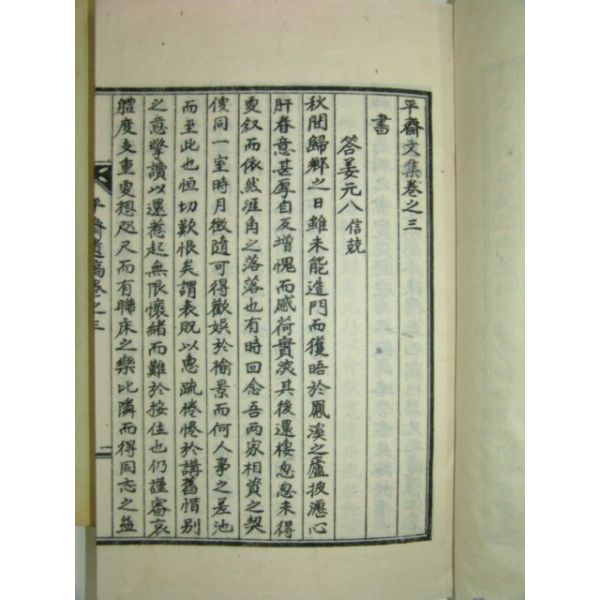 平齋文集卷之三
書
答姜元八信兢
秋間歸鄉之日雖未能造門而獲晤於鳳溪之廬披瀝心
肝眷意甚厚自反增愧而感荷實深其後還棲忽忽未得
更叙而依然涯角之落落也有時回念吾兩家相資之契
便同一室時月徵隨可得歡娛於楡景而何人事之差池
而至此也恒切歎恨矣謂表貺以惠疏惓惓於講舊惜別
之意擎讀以還惹起無限懷緖而難於按住也仍謹審哀
軆度支重更想咫尺而有聯床之樂比隣而得同志之益
平齋遺稿卷之三
一